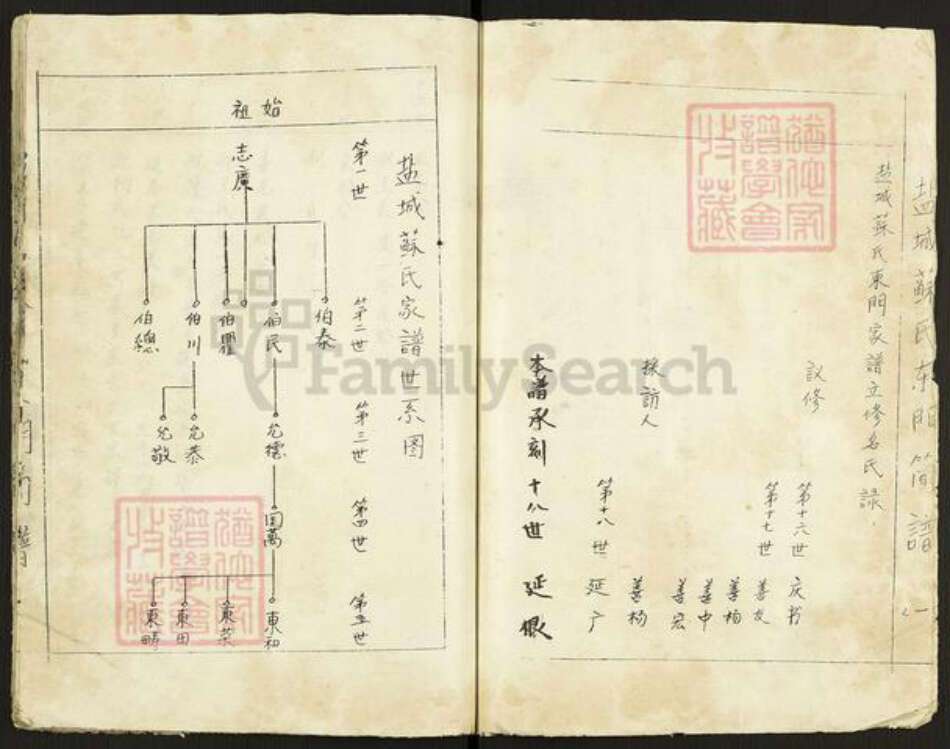 盐城蘇氏东門简譜
盐城蘇氏東門家譜立修名氏錄
议修
第十六世
庆书
第十七世
善友
善柏
善中
善宏
善杨
採訪人
第十八世
延广
本譜承刻 十八世 延俶
猶他家譜學會收藏
盐城蘇氏家譜世系图
始祖
第一世
志廣
第二世
伯泰
伯民
伯川
第三世
允德
允恭
允敬
第四世
国萬
第五世
東初
東菜
東田
東疇
猶他家譜學會收藏
FamilySearch